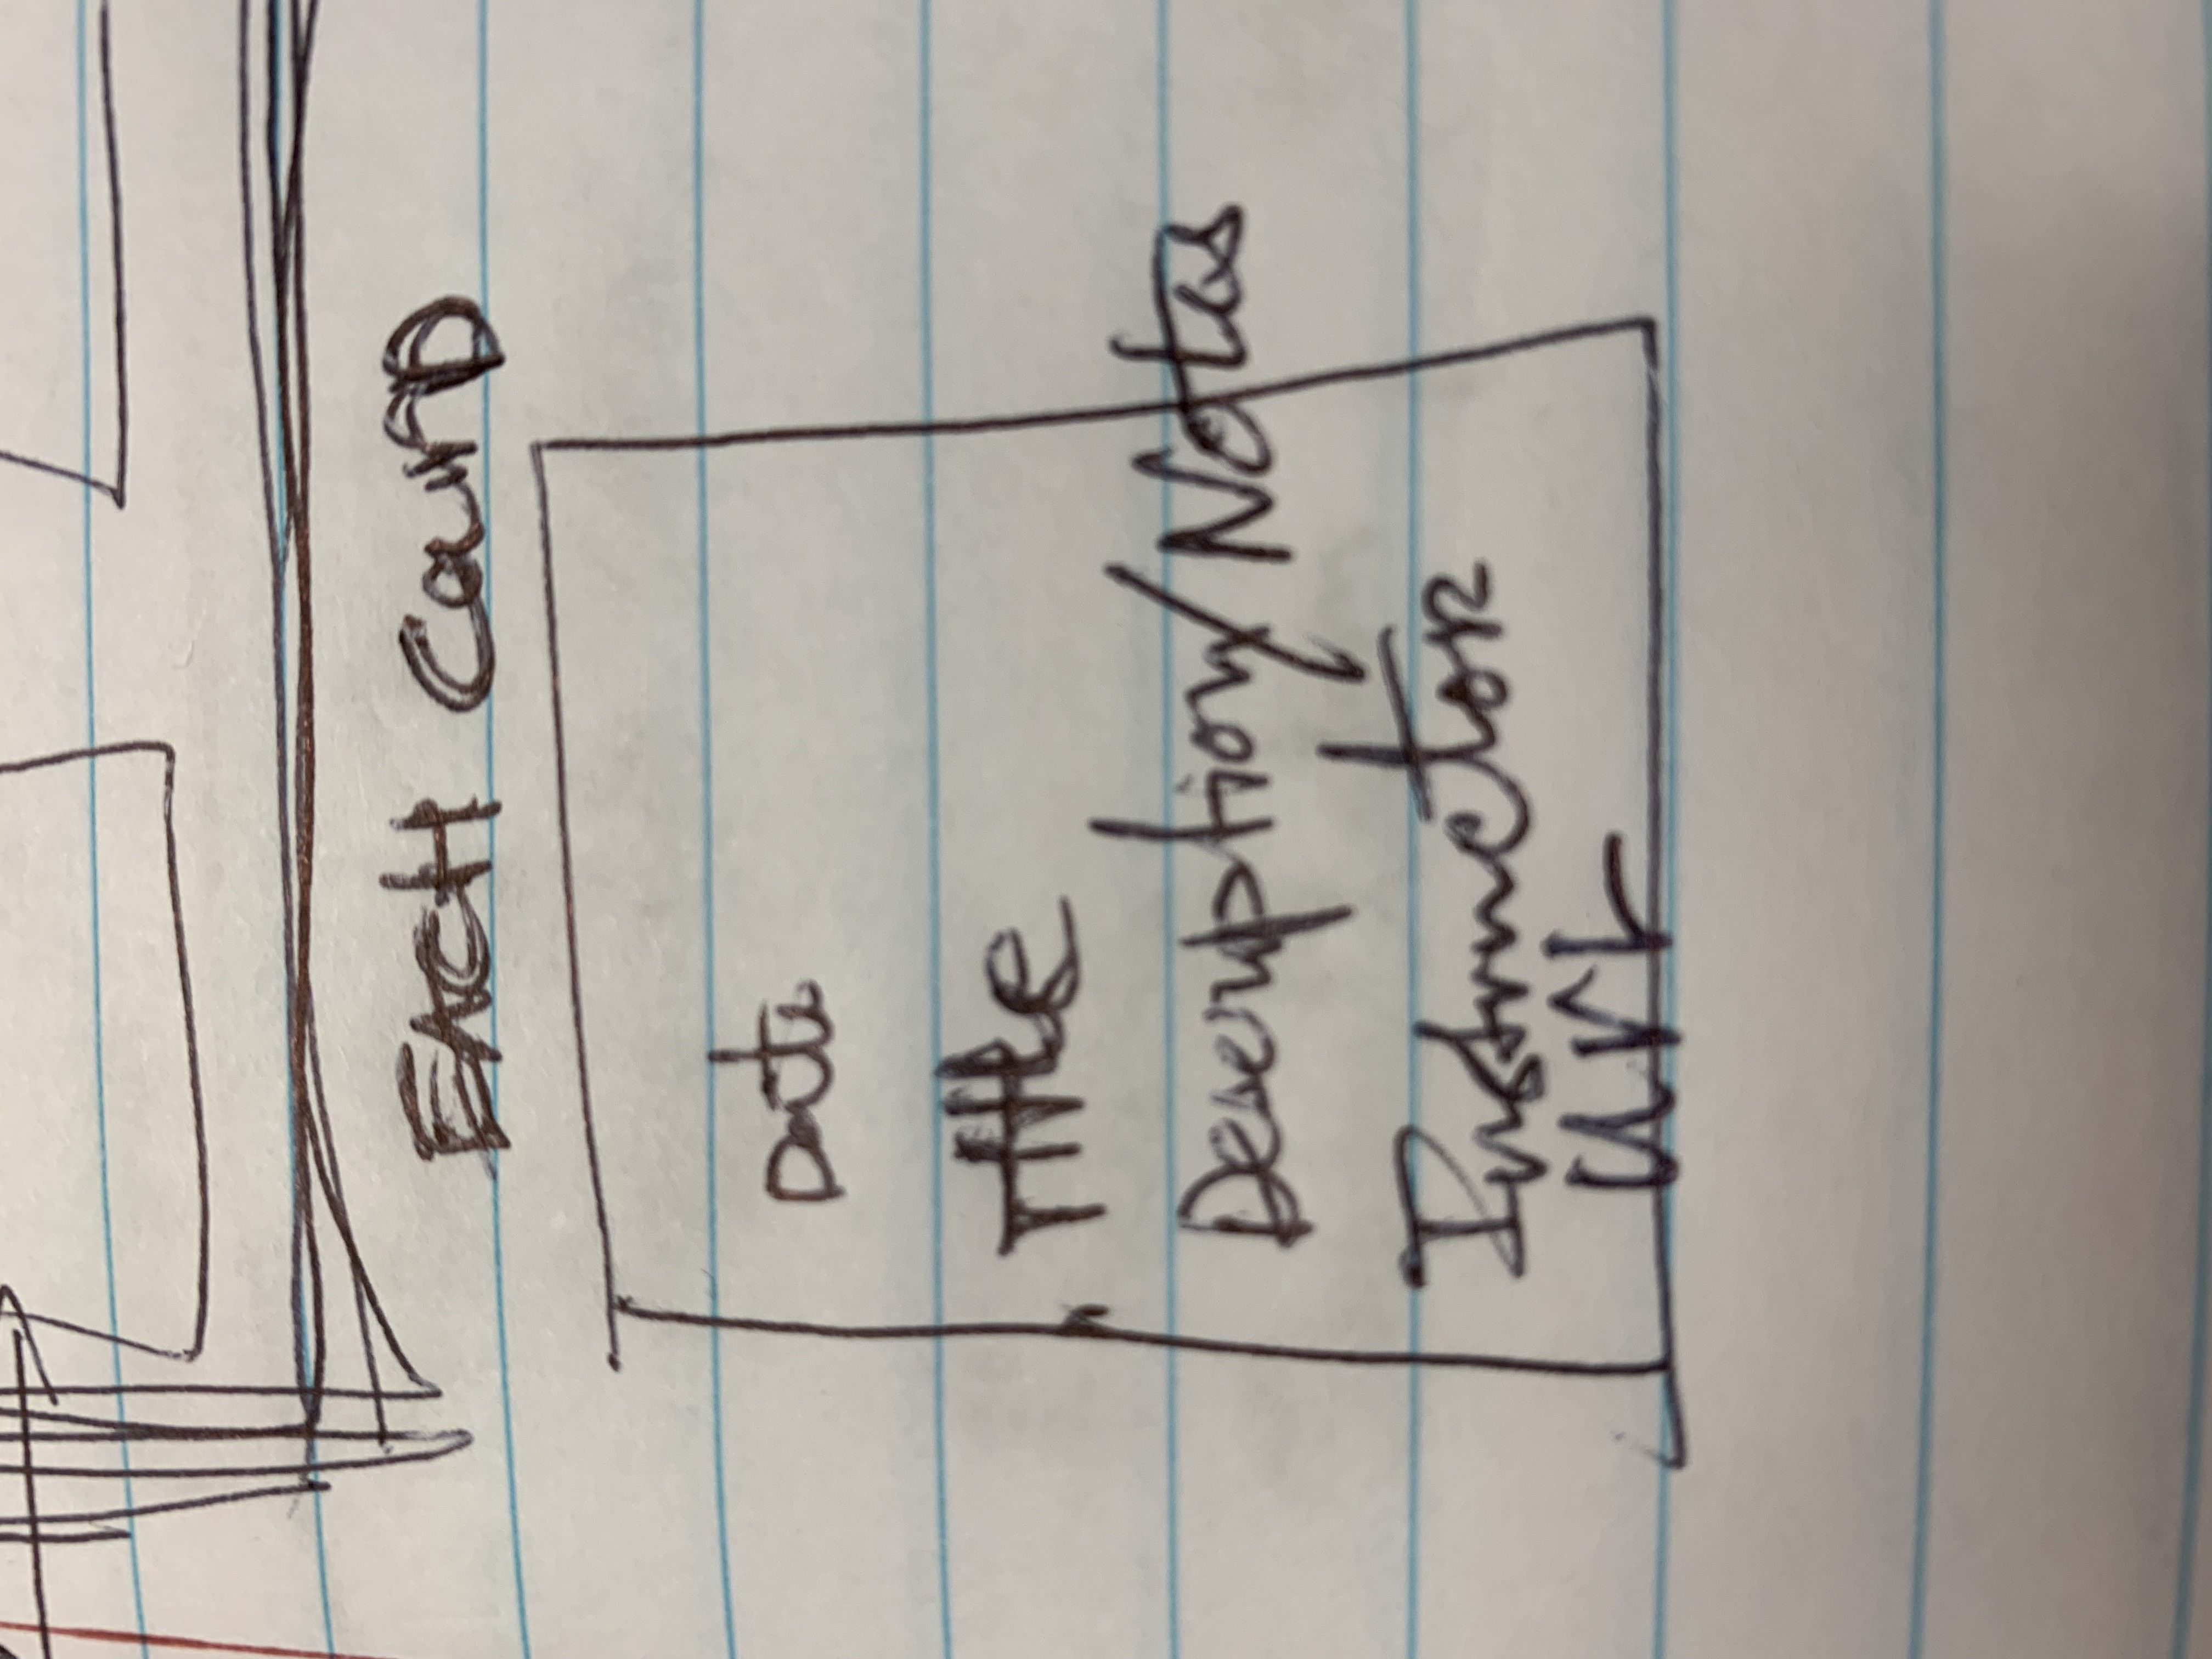 EACH CarD
Date
TitLe
Description/Notes
InstructoR
UrL